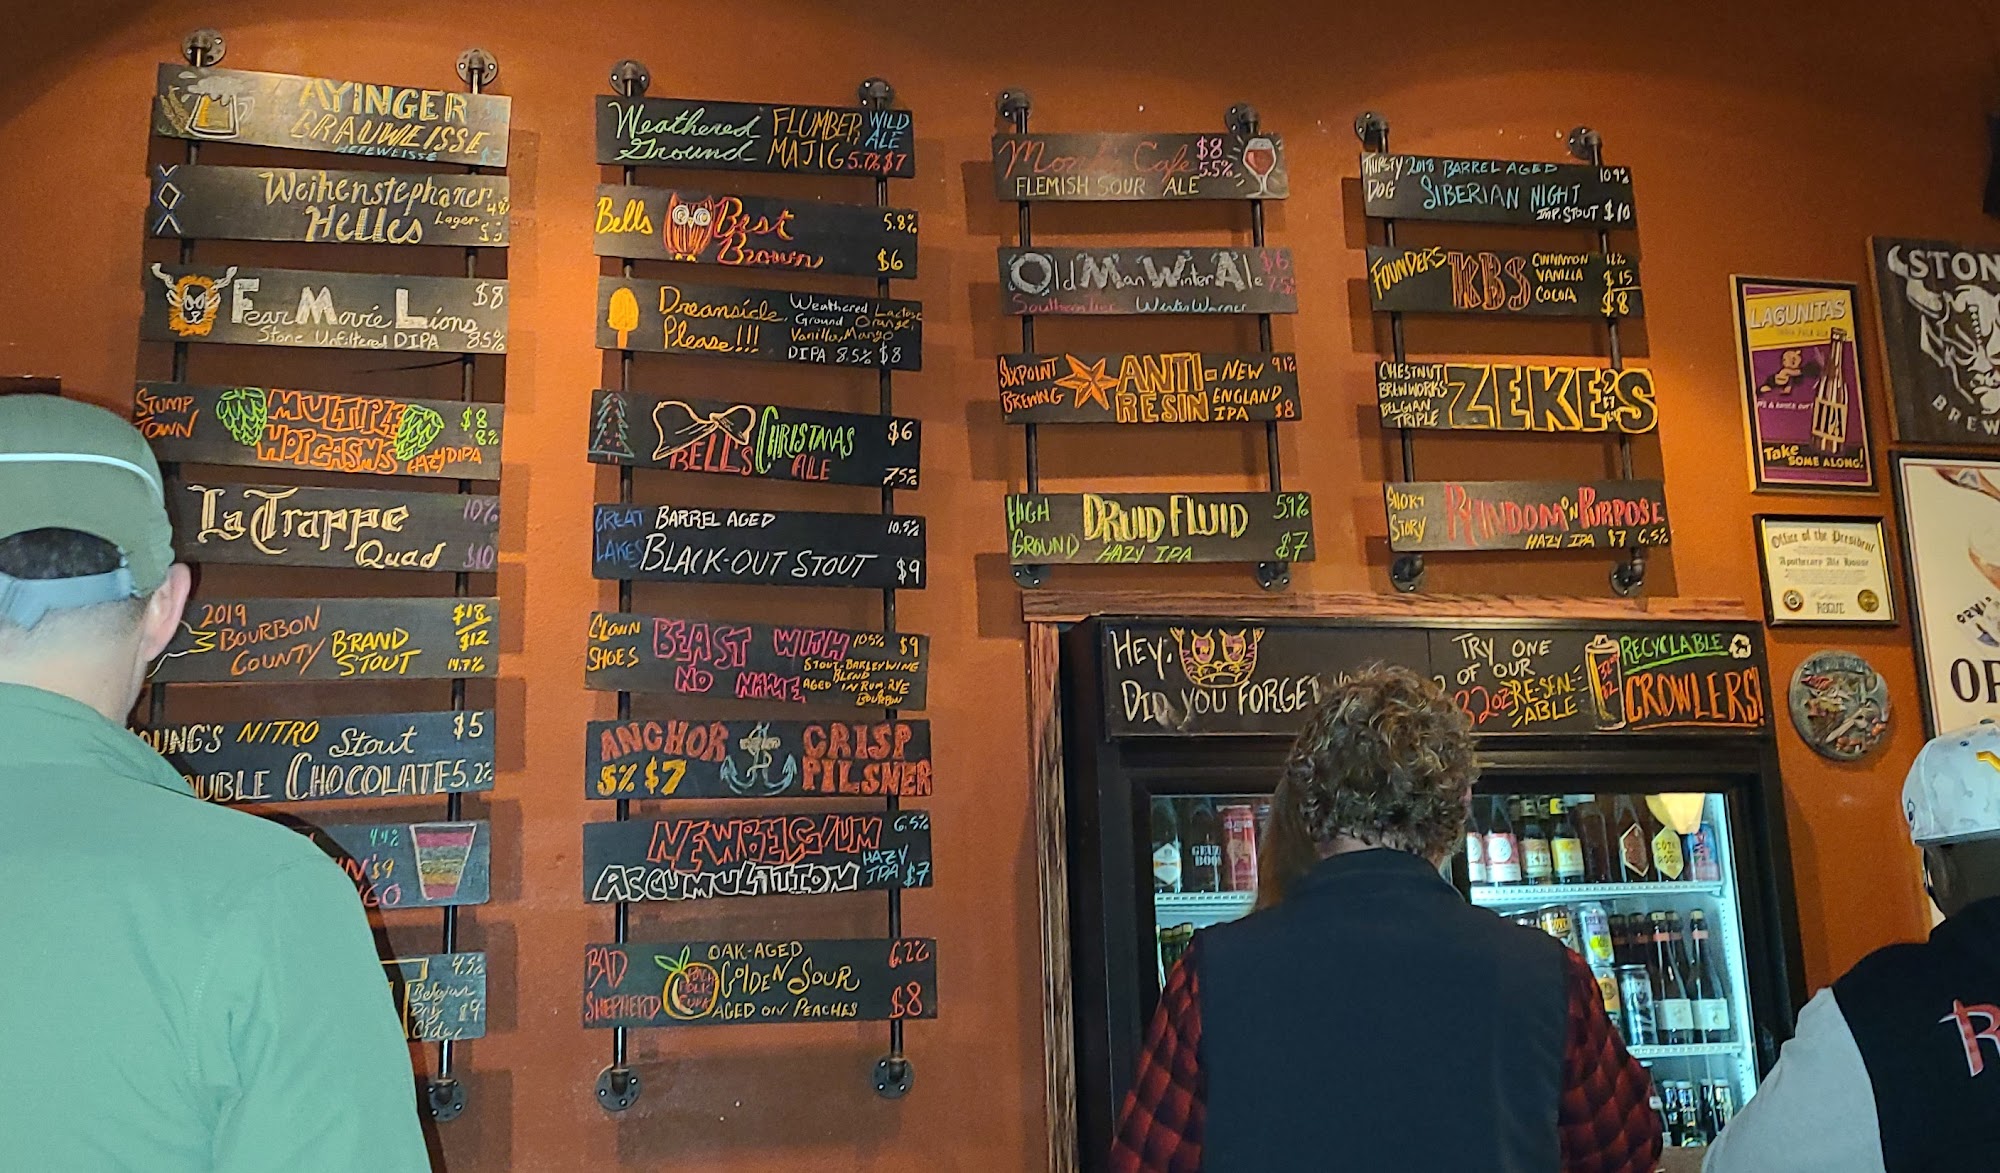 AYINGER
BRAUWEISSE
HEFEWEISSE
Weihenstephaner
Helles Lager
Fear Movie Lions $8
Stone Unfiltered DIPA 8.5%
STUMP TOWN
MULTIPLE $8
HOPGASMS 8%
HAZY DIPA
La Trappe 10%
Quad $10
2019
BOURBON COUNTY
BRAND STOUT
$18
$12
14.7%
NITRO Stout $5
CHOCOLATE 5.2%
4.4%
$9
4.5%
Belgian
Dry $9
Cider
Weathered Ground
FLUMBER MAJIG
WILD ALE
5.7% $7
Bells Best Brown
5.8%
$6
Dreamsicle, Please!!!
Weathered Lactose
Ground Orange,
Vanilla, Mango
DIPA 8.5% $8
BELL'S CHRISTMAS ALE
$6
7.5%
GREAT LAKES
BARREL AGED 10.5%
BLACK-OUT STOUT $9
CLOWN SHOES
BEAST WITH NO NAME
10.5% $9
STOUT-BARLEYWINE
BLEND
AGED IN RUM, RYE
BOURBON
ANCHOR CRISP PILSNER
5% $7
NEW BELGIUM 6.5%
ACCUMULATION HAZY IPA $7
BAD SHEPHERD
OAK-AGED 6.2%
GOLDEN SOUR
AGED ON PEACHES $8
Cafe $8
5.5%
FLEMISH SOUR ALE
Old Man Winter Ale $6
7.5%
Southern Tier Winter Warmer
SIXPOINT BREWING
ANTI-RESIN
NEW 9.1%
ENGLAND
IPA $8
HIGH GROUND
DRUID FLUID 5.9%
HAZY IPA $7
THIRSTY DOG
2018 BARREL AGED 10.9%
SIBERIAN NIGHT
IMP. STOUT $10
FOUNDERS KBS
CINNAMON
VANILLA
COCOA
$15
$8
CHESTNUT
BREWWORKS
BELGIAN
TRIPLE
ZEKE'S
SHORT STORY
RANDOM ON PURPOSE
HAZY IPA $7 6.5%
HEY,
DID YOU FORGET
TRY ONE
OF OUR
32oz RE-SEAL-ABLE
32 OZ
RECYCLABLE
CROWLERS!
LAGUNITAS
INDIA PALE ALE
Take
SOME ALONG!
STON
BREW
Office of the President
Apothecary Ale House
ROGUE
OF
GEUZE
BOON
R